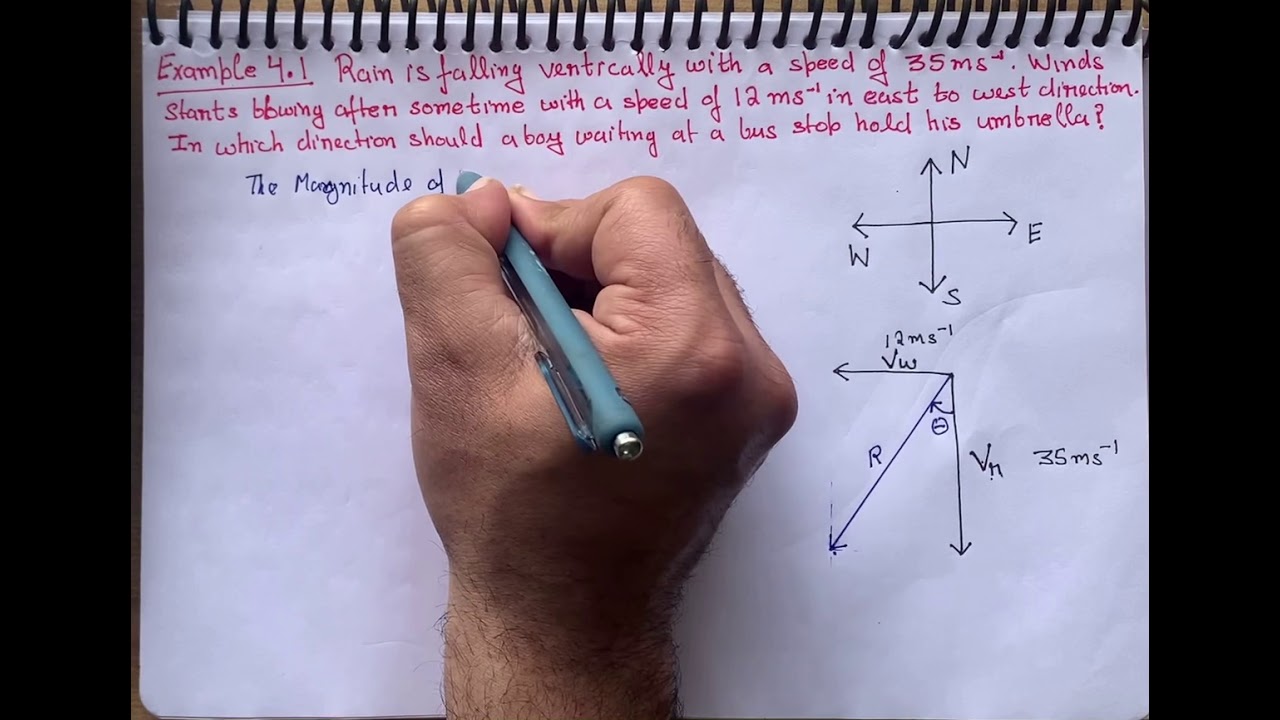 Example 4.1 Rain is falling vertically with a speed of 35 ms⁻¹. Winds
starts blowing after sometime with a speed of 12 ms⁻¹ in east to west direction.
In which direction should a boy waiting at a bus stop hold his umbrella?
The Magnitude of
N
W
E
S
12 ms⁻¹
Vw
θ
R
Vr 35 ms⁻¹